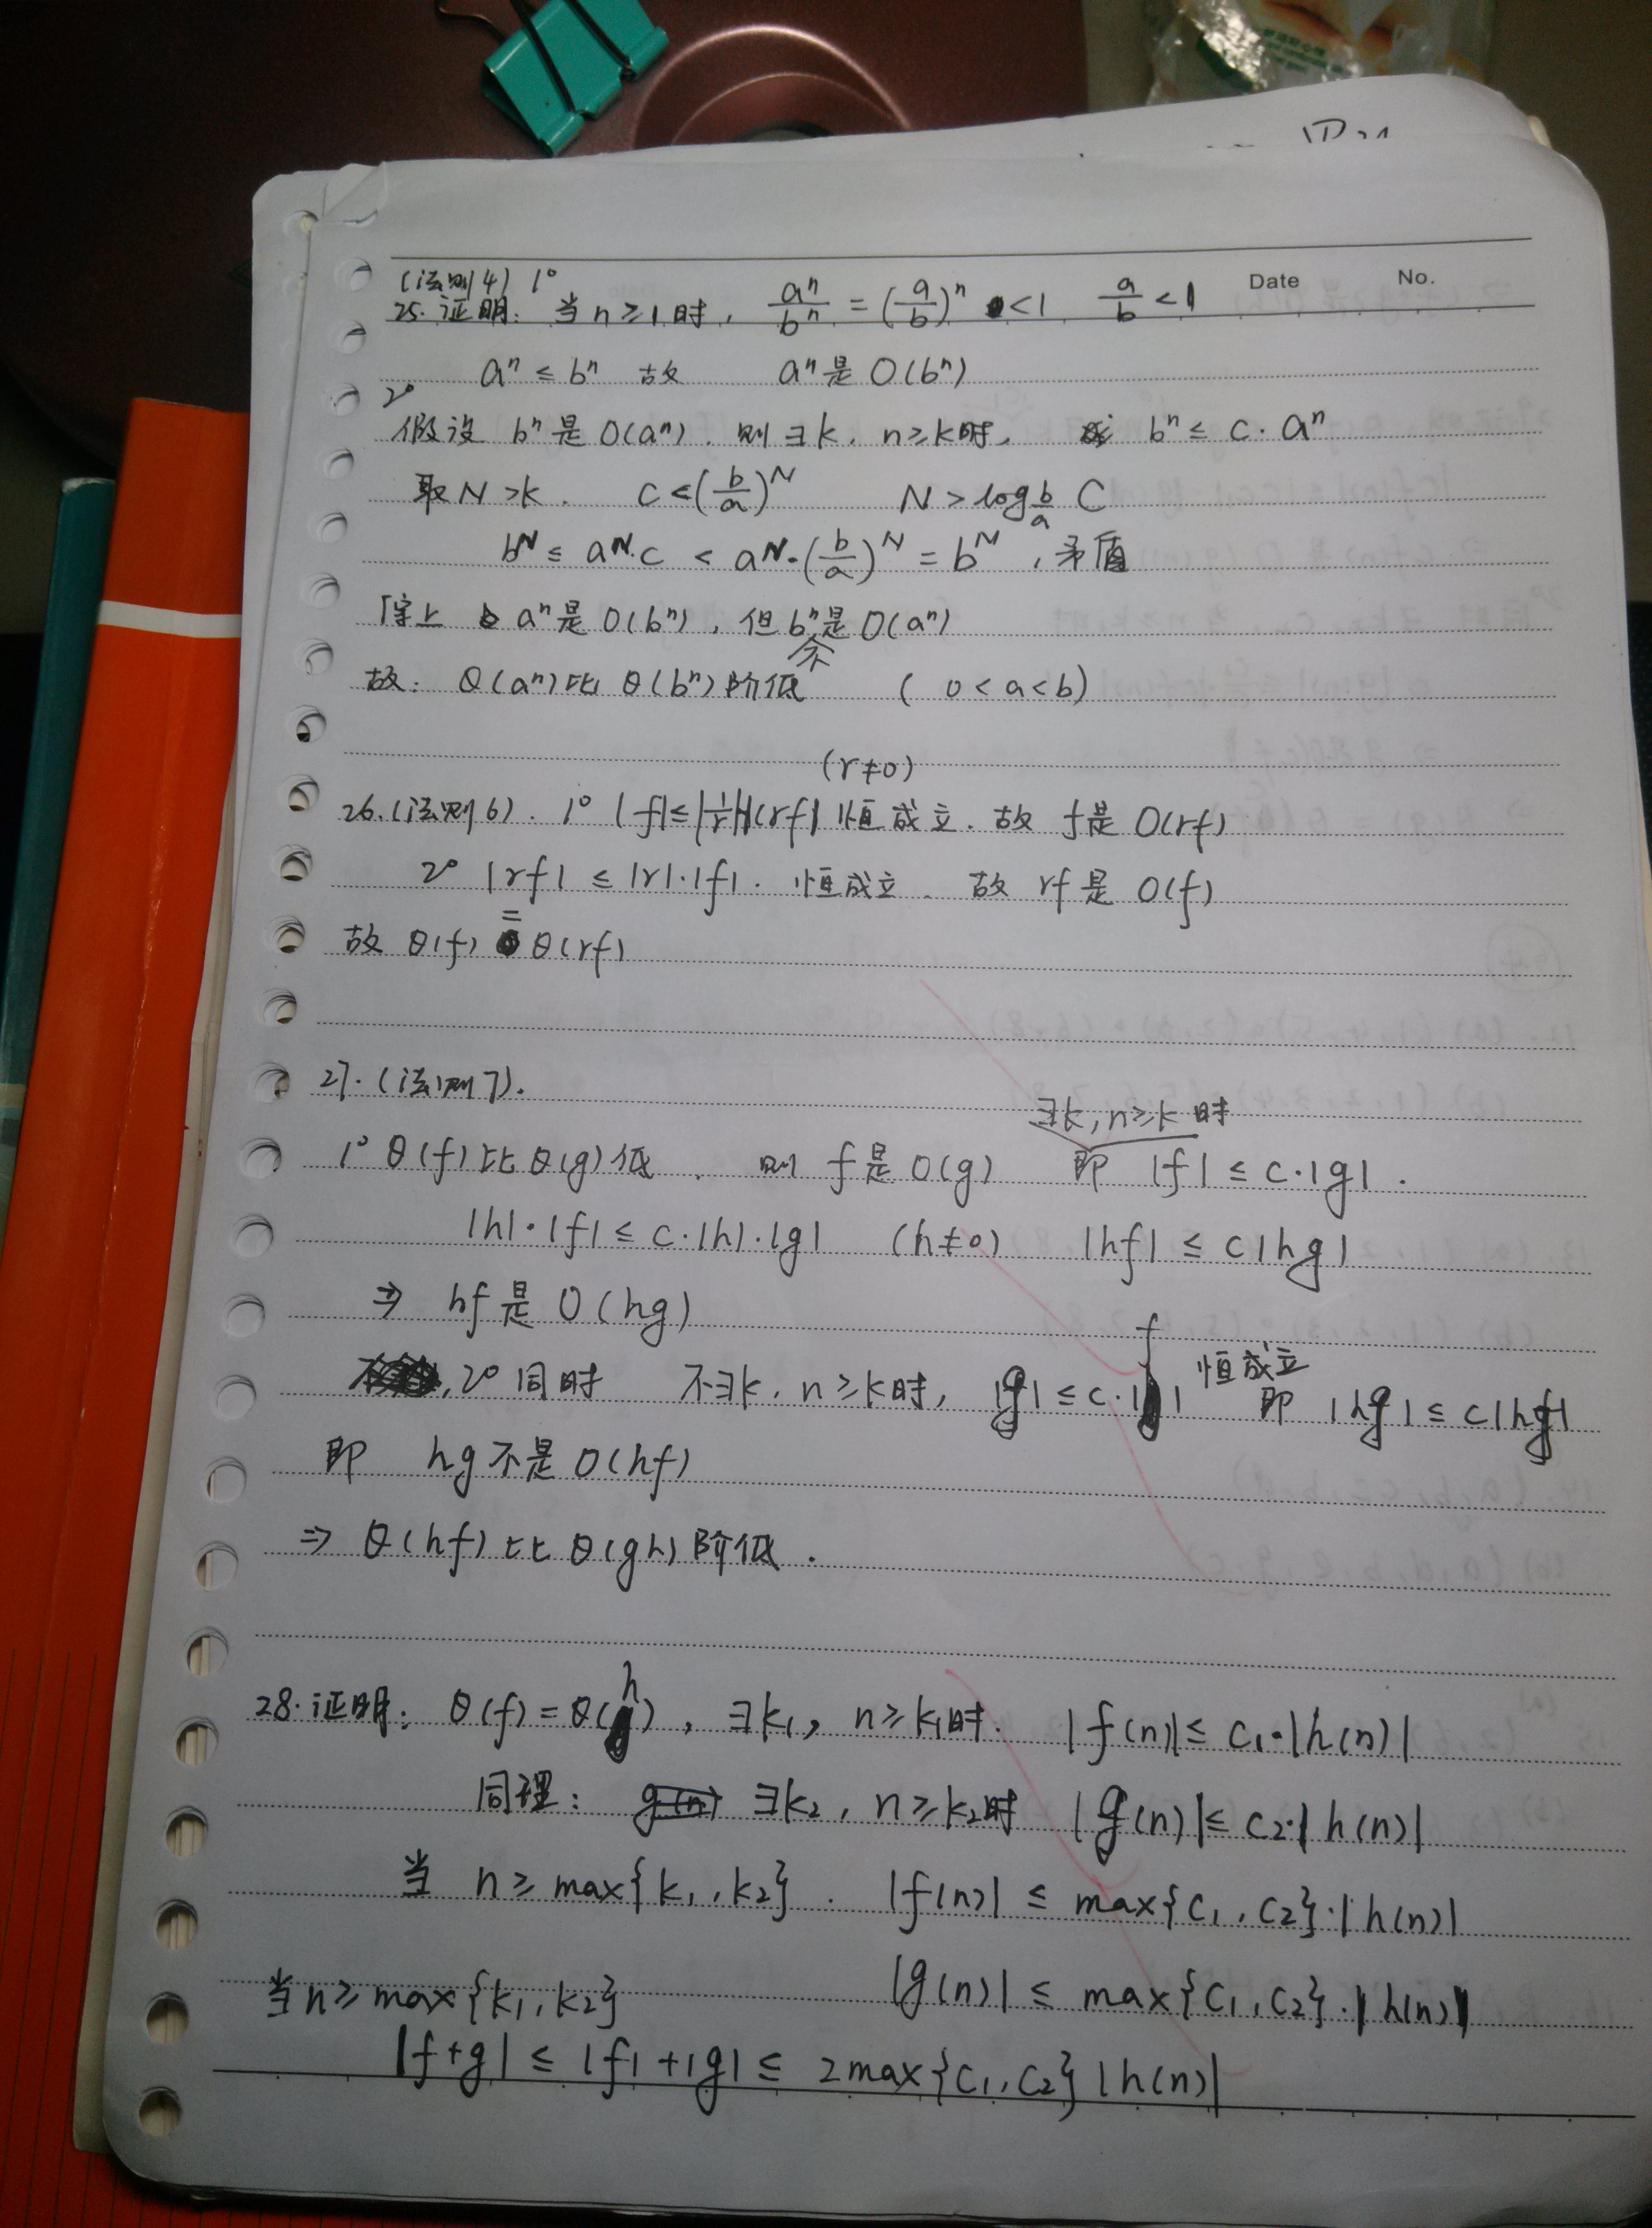 Date No.
(法则4) 1°
25. 证明: 当 n≥1 时, aⁿ/bⁿ = (a/b)ⁿ <1 a/b <1
aⁿ ≤ bⁿ 故 aⁿ是 O(bⁿ)
2°
假设 bⁿ是 O(aⁿ). 则 ∃k. n≥k时, bⁿ ≤ c·aⁿ
取 N>k. C<(b/a)^N N > log_{b/a} C
b^N ≤ a^N·c < a^N·(b/a)^N = b^N , 矛盾
综上 aⁿ是 O(bⁿ), 但 bⁿ不是 O(aⁿ)
故: Θ(aⁿ)比 Θ(bⁿ)阶低 (0<a<b)
(r≠0)
26.(法则6). 1° |f|≤|1/r||(rf)| 恒成立. 故 f是 O(rf)
2° |rf| ≤ |r|·|f|. 恒成立. 故 rf 是 O(f)
故 Θ(f) = Θ(rf)
27.(法则7).
∃k, n≥k 时
1° Θ(f)比Θ(g)低. 则 f是 O(g) 即 |f| ≤ c·|g|.
|h|·|f| ≤ c·|h|·|g| (h≠0) |hf| ≤ c|hg|
⇒ hf是 O(hg)
2° 同时 不∃k, n≥k时, |g| ≤ c·|f| 恒成立 即 |hg| ≤ c|hf|
即 hg不是O(hf)
⇒ Θ(hf)比Θ(gh)阶低.
28. 证明: Θ(f)=Θ(h), ∃k₁, n≥k₁时. |f(n)|≤ c₁·|h(n)|
同理: ∃k₂, n≥k₂时 |g(n)|≤ c₂·|h(n)|
当 n≥max{k₁,k₂}. |f(n)| ≤ max{c₁,c₂}·|h(n)|
当n≥max{k₁,k₂} |g(n)| ≤ max{c₁,c₂}·|h(n)|
|f+g| ≤ |f|+|g| ≤ 2max{c₁,c₂}|h(n)|